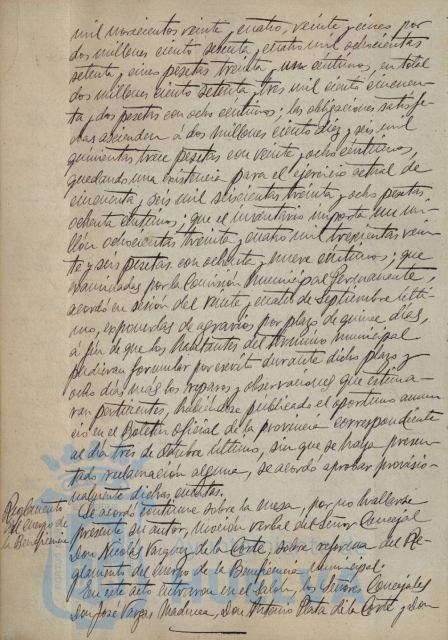 mil novecientos veinte y cuatro, veinte y cinco por
dos millones ciento setenta y cuatro mil ochocientas
setenta y cinco pesetas treinta y un céntimos, en total
dos millones ciento setenta y tres mil ciento cincuen-
ta y dos pesetas con ocho céntimos; las obligaciones satisfe-
chas ascienden á dos millones ciento diez y seis mil
quinientas trece pesetas con veinte y ocho céntimos,
quedando una existencia para el ejercicio actual de
cincuenta y seis mil seiscientas treinta y ocho pesetas
ochenta céntimos; que el inventario importa un mi-
llón ochocientas treinta y cuatro mil trescientas vein-
te y seis pesetas con ochenta y nueve céntimos; que
examinadas por la Comisión Municipal Permanente,
acordó en sesión del veinte y cuatro de Septiembre últi-
mo, exponerlas de agravios por plazo de quince días,
á fin de que los habitantes del término municipal
pudieran formular por escrito durante dicho plazo y
ocho días más los reparos y observaciones que estima-
ran pertinentes, habiéndose publicado el oportuno anun-
cio en el Boletín oficial de la provincia correspondiente
al día tres de Octubre último, sin que se haya presen-
tado reclamación alguna, se acordó aprobar provisio-
nalmente dichas cuentas.
Reglamento
del Cuerpo de
la Beneficencia
Se acordó continúe sobre la mesa, por no hallarse
presente su autor, moción verbal del Señor Concejal
Don Nicolás Vázquez de la Corte, sobre reforma del Re-
glamento del Cuerpo de la Beneficencia Municipal.
En este acto entraron en el Salón, los Señores Concejales
Don José Vargas Machuca, Don Antonio de la Corte y Don